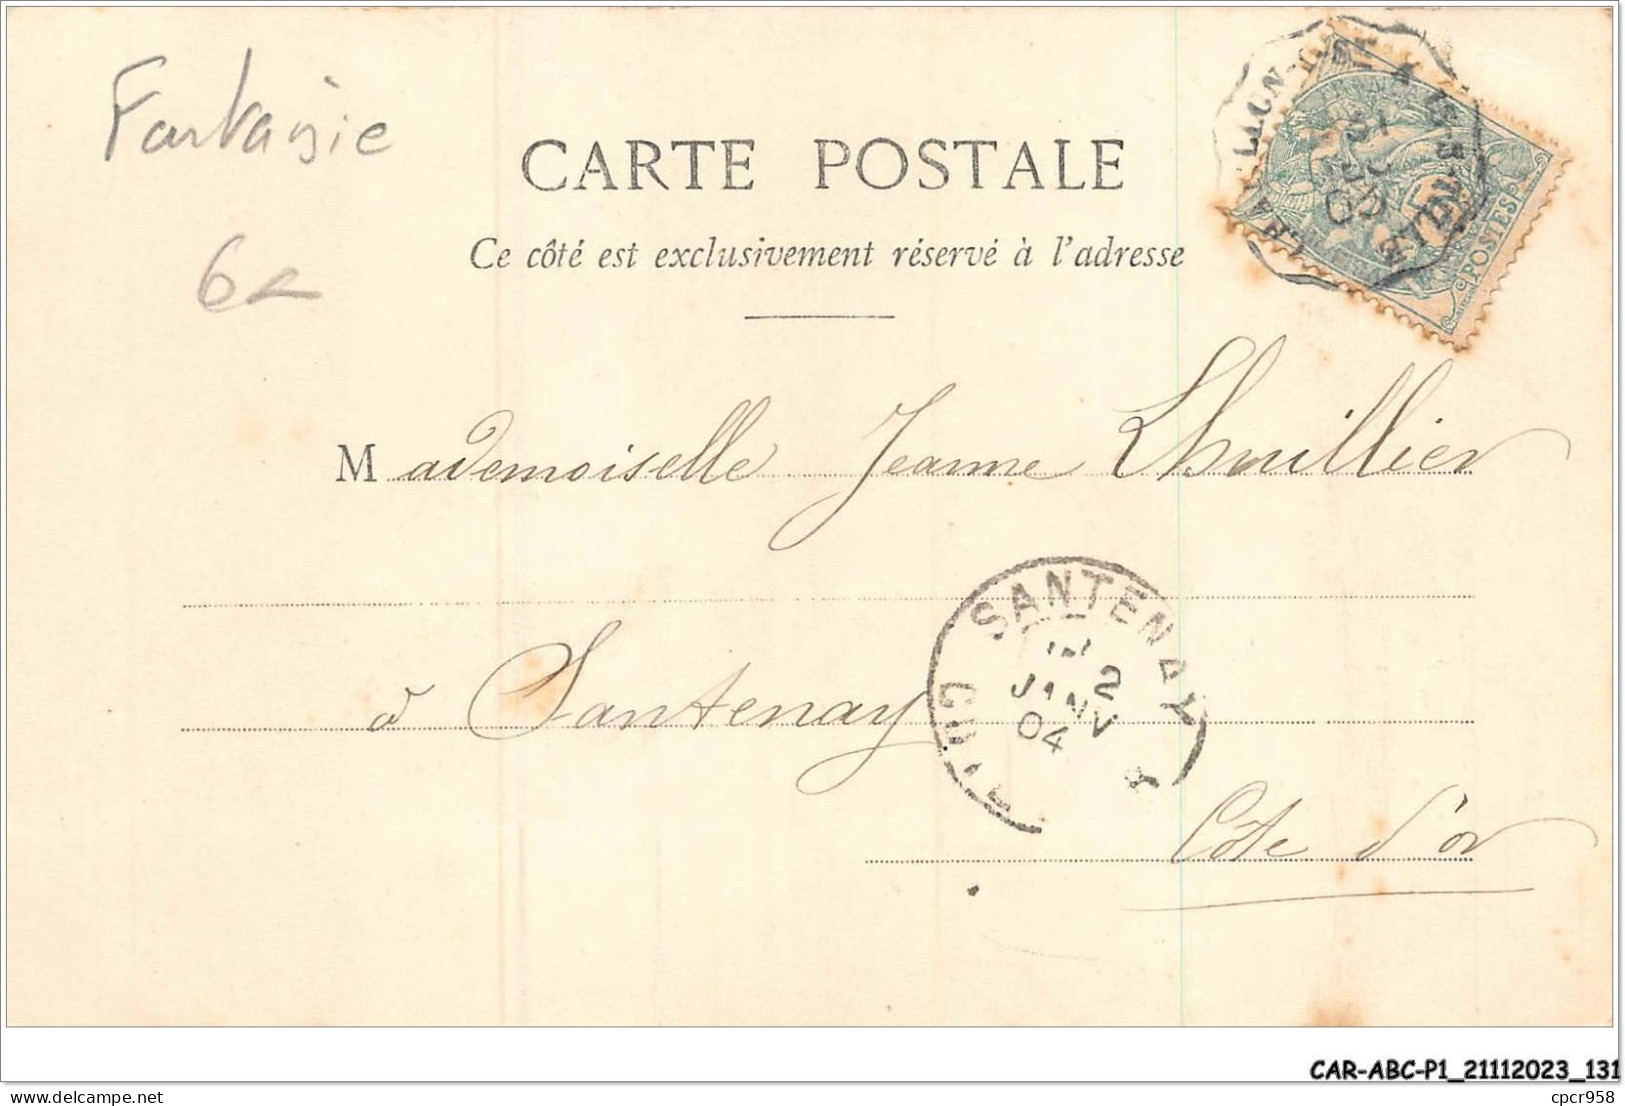 Fantaisie
CARTE POSTALE
Ce côté est exclusivement réservé à l'adresse
6€
POSTES
Mademoiselle Jeanne Lhuillier
SANTENAY
2
JANV
04
à Santenay
Côte d'or
CAR-ABC-P1_21112023_131
delcampe.net
cpcr958